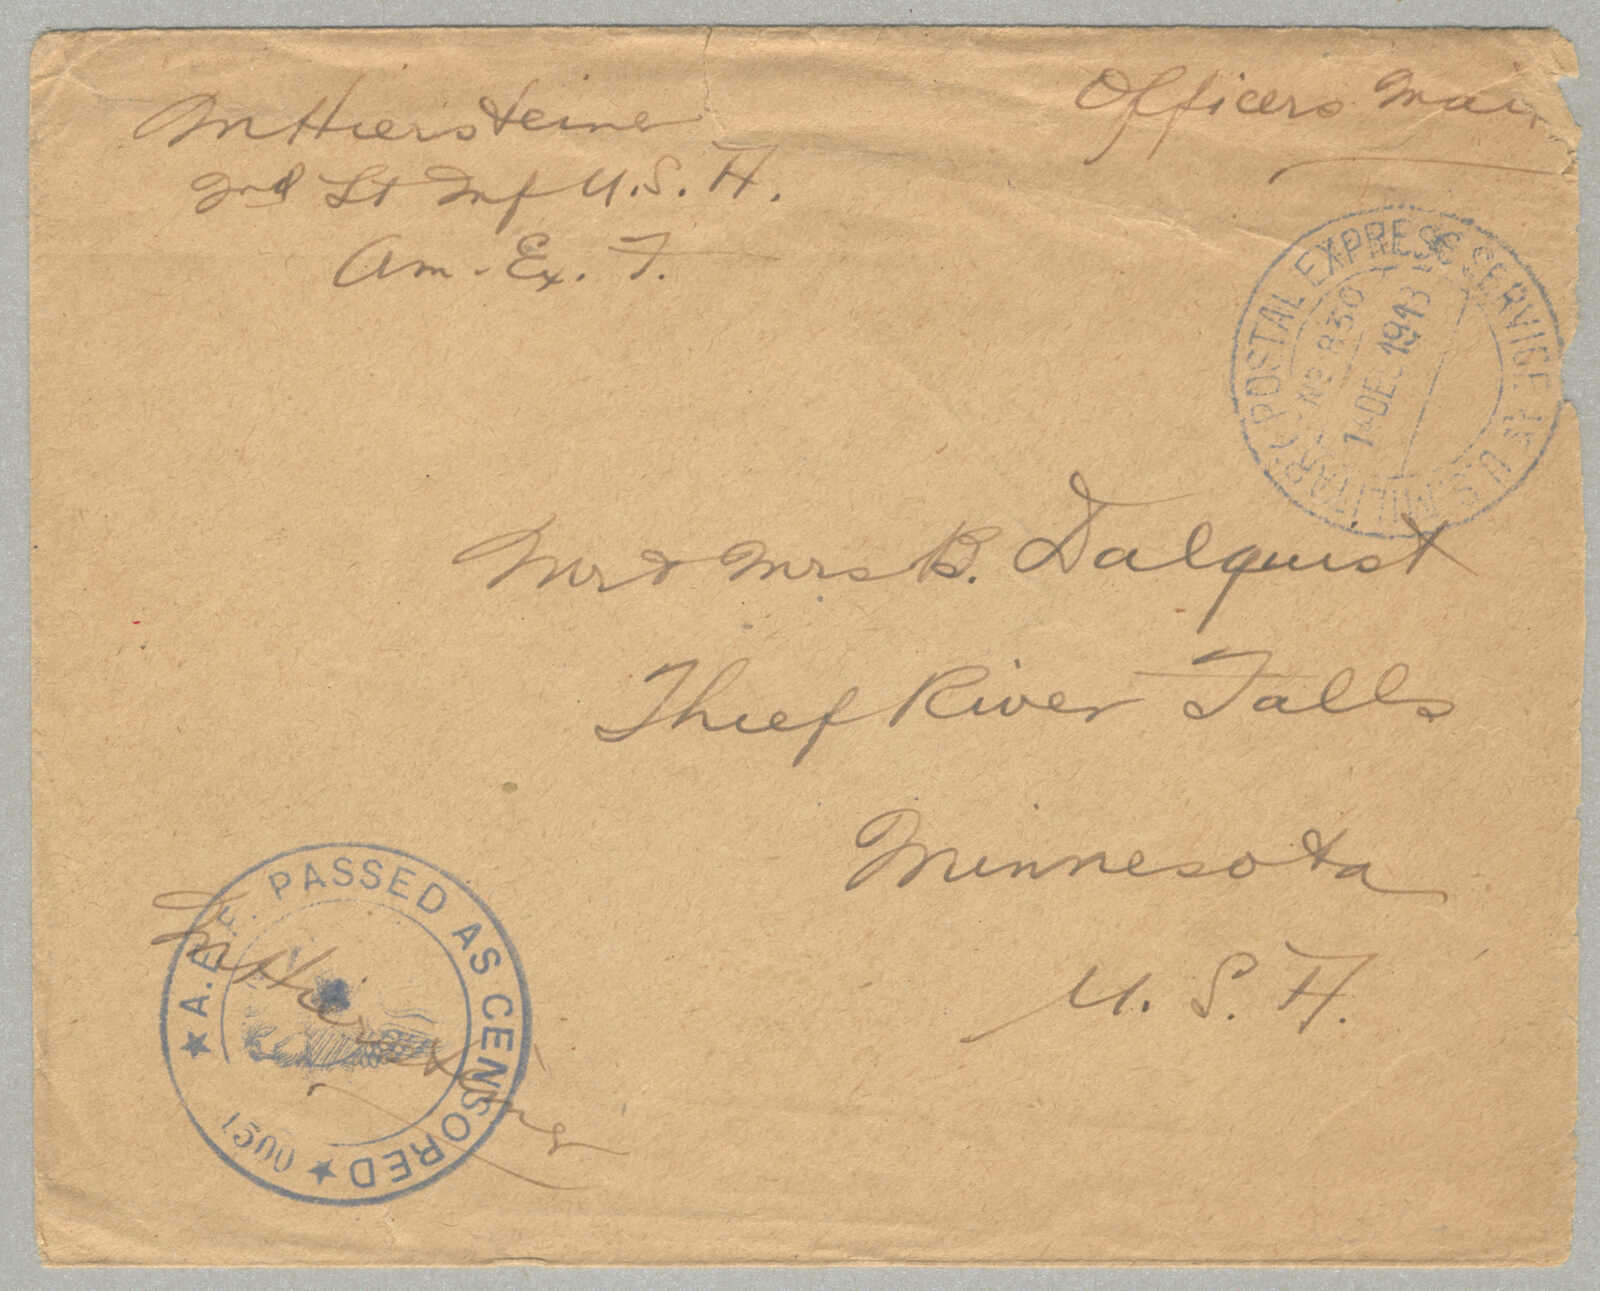 M Hiersteiner
2nd Lt Inf U.S.A.
Am. Ex. F.
Officers Mail
U.S. MILITARY POSTAL EXPRESS SERVICE
Nº 830
14 DEC 1918
Mr & Mrs B. Dalquist
Thief River Falls
Minnesota
U. S. A.
★ A.E.F. PASSED AS CENSORED ★
1500
M Hiersteiner